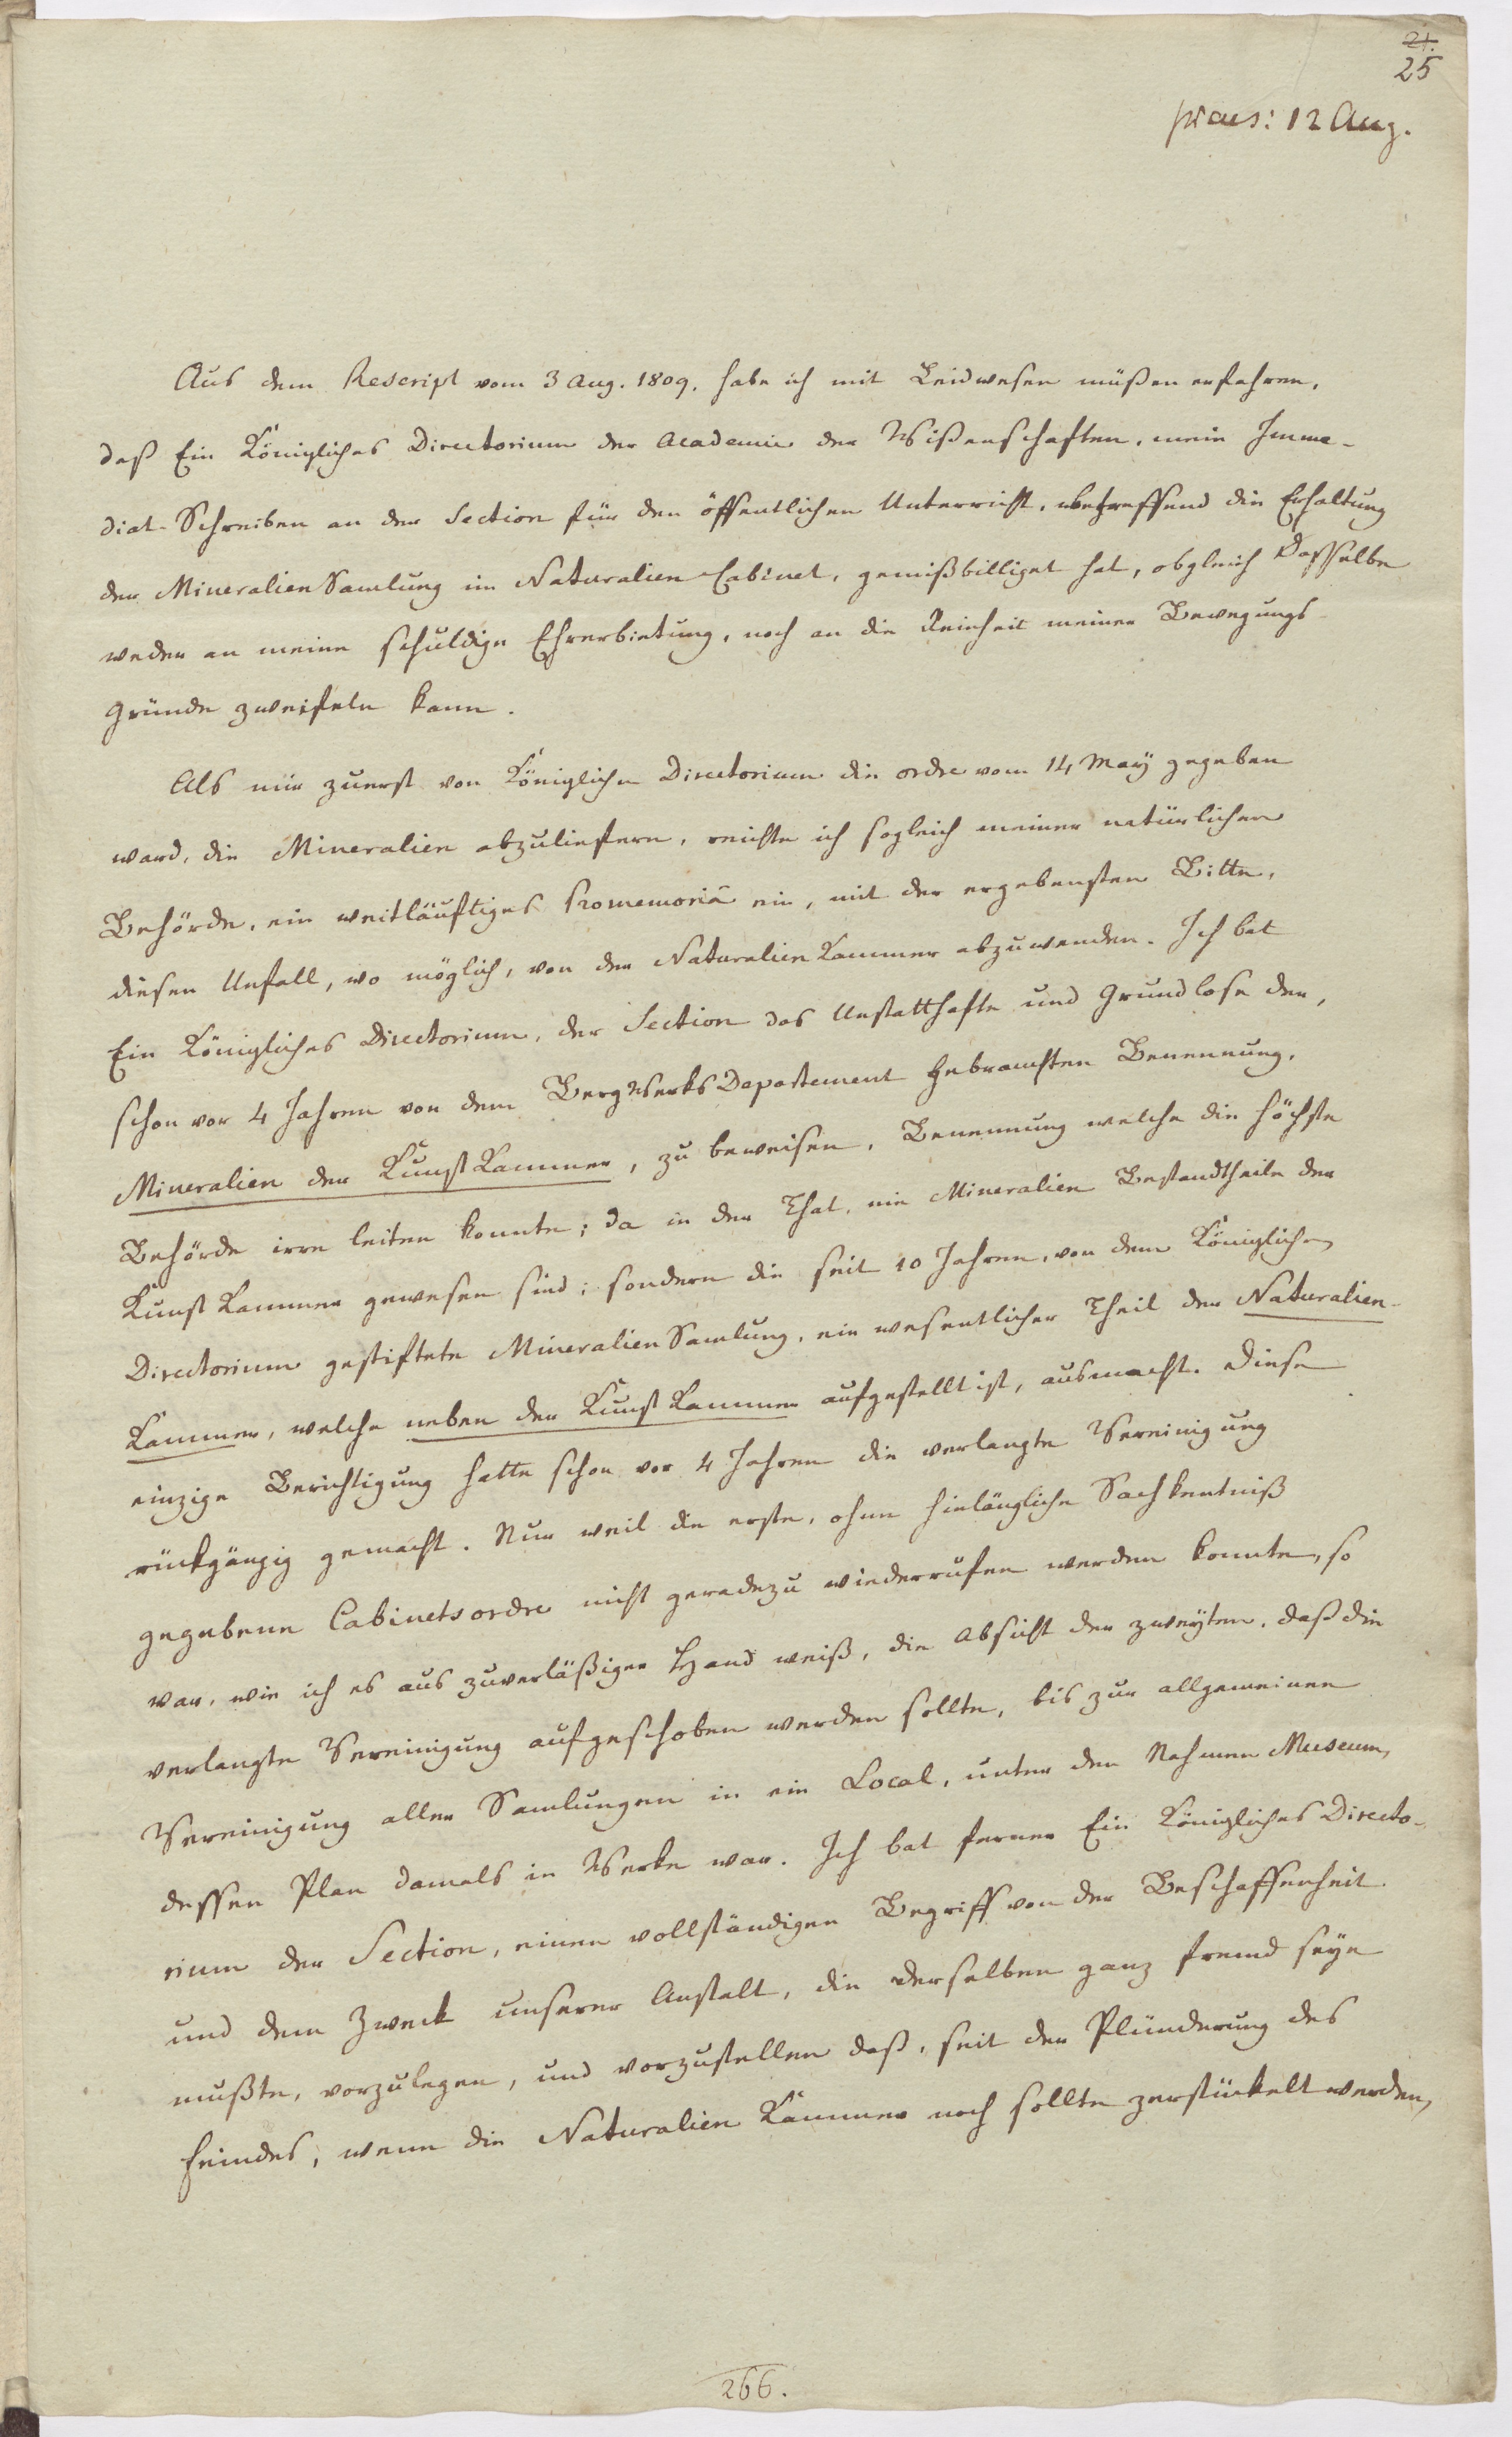 21.
25
praes: 12 Aug.
Aus dem Rescript vom 3 Aug. 1809. habe ich mit Leidwesen müßen erfahren,
daß Ein Königliches Directorium der Academie der Wißenschaften, mein Imme-
diat-Schreiben an der Section für den öffentlichen Unterricht, betreffend die Erhaltung
der Mineralien Samlung im Naturalien-Cabinet, gemißbilliget hat, obgleich Dasselbe
weder an meine schuldige Ehrerbietung, noch an die Reinheit meiner Bewegungs-
Gründe zweifeln kann.
Als mir zuerst von Königliche Directorium die ordre vom 14 May gegeben
ward, die Mineralien abzuliefern, reichte ich sogleich meiner natürlichen
Behörde, ein weitläuftiges Promemoriâ ein, mit der ergebensten Bitte,
diesen Unfall, wo möglich, von der Naturalien Kammer abzuwenden. Ich bat
Ein Königliches Directorium, der Section das Unstatthafte und Grundlose der,
schon vor 4 Jahren von dem BergWerksDepartement gebrauchten Benennung,
Mineralien der Kunst Kammer, zu beweisen, Benennung welche die höchste
Behörde irre leiten konnte; da in der That, nie Mineralien Bestandtheile der
Kunst Kammer gewesen sind; sondern die seit 10 Jahren, von dem Königlichen
Directorium gestiftete Mineralien Samlung, ein wesentlicher Theil der Naturalien-
Kammer, welche neben der Kunst Kammer aufgestellt ist, ausmacht. Diese
einzige Berichtigung hatte schon vor 4 Jahren die verlangte Vereinigung
rückgängig gemacht. Nur weil die erste, ohne hinlängliche Sachkentniß
gegebene Cabinetsordre nicht geradezu wiederrufen werden konnte, so
war, wie ich es aus zuverläßiger Hand weiß, die Absicht der zweyten, daß die
verlangte Vereinigung aufgeschoben werden sollte, bis zur allgemeinen
Vereinigung aller Samlungen in ein Local, unter den Nahmen Museum,
dessen Plan damals in Werke war. Ich bat ferner Ein Königliches Directo-
rium der Section, einen vollständigen Begriff von der Beschaffenheit
und dem Zweck unserer Anstalt, die derselben ganz fremd seyn
mußte, vorzulegen, und vorzustellen daß, seit der Plünderung des
Feindes, wenn die Naturalien Kammer noch sollte zerstückelt werden,
266.